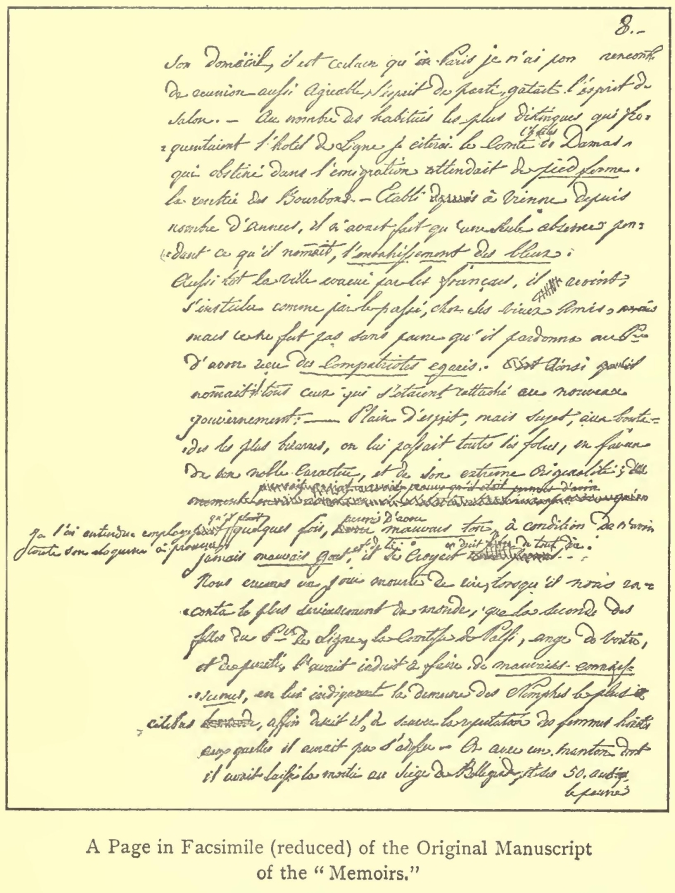 8.-
son domicil, il est certain qu'en Paris je n'ai pas rencontré
de reunion aussi agreable, l'esprit de parti, gatait l'esprit de
salon. — Au nombre des habitués les plus distingués qui fré=
=quentaient l'hotel de Ligne je citerai le Comte de Damas,
qui obstiné dans l'émigration attendait de pied ferme
la rentrée des Bourbons. — Etabli à Vienne depuis
nombre d'années, il n'avait fait qu'une seule absence pen=
=dant ce qu'il nomait, l'envahissement des bleus:
Aussitot la ville evacué par les français, il revint,
s'installer comme par le passé, chez ses vieux Amis,
mais ce ne fut pas sans peine qu'il pardonna au Pce
d'avoir reçu des Compatriotes egarés. C'est ainsi qu'il
nomait tous ceux qui s'etaient rattaché au nouveau
gouvernement: — Plein d'esprit, mais sujet, aux bouta=
=des les plus bizarres, on lui passait toutes ses folies, en faveur
de son noble Caractere, et de son extreme originalité;
Je l'ai entendu employer
toute son eloquence à prouver
qu'il fallait quelques fois, mauvais ton, à condition de n'avoir
jamais mauvais gout,
Nous eumes un jour mourir de rire, lorsqu'il nous ra=
=conta le plus serieusement du monde, que la seconde des
filles du Pce de Ligne, la Comtesse de Palfi, ange de vertu,
et de pureté, l'avait induit à faire de mauvaises connaiss
=sances, en lui indiquant la demeure des Nymphes les plus
celebres, affin disait il, de sauver la reputation des femmes
auxquelles il aurait pu s'adresser — Or avec un menton dont
il avait laissé la moitié au Siége de Bellegarde, et ses 50. ans
le pauvre
A Page in Facsimile (reduced) of the Original Manuscript
of the “Memoirs.”